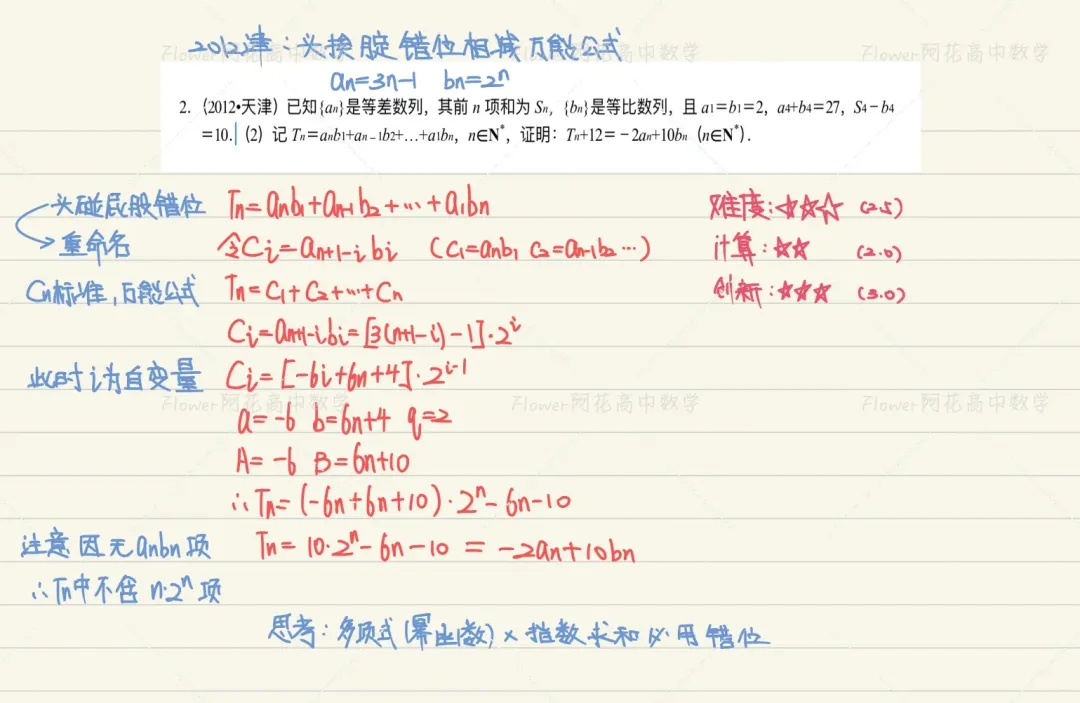 2012津：头接腚 错位相减 万能公式
an=3n-1 bn=2ⁿ
2.（2012•天津）已知{an}是等差数列，其前 n 项和为 Sn，{bn}是等比数列，且 a1=b1=2，a4+b4=27，S4-b4
=10.（2）记 Tn=anb1+an-1b2+…+a1bn，n∈N*，证明：Tn+12=-2an+10bn（n∈N*）.
头碰屁股错位 Tn=anb1+an-1b2+…+a1bn 难度:★★☆ (2.5)
重命名 令Ci=an+1-i bi （C1=anb1 C2=an-1b2…） 计算:★★ (2.0)
Cn标准，万能公式 Tn=C1+C2+…+Cn 创新:★★★ (3.0)
Ci=an+1-ibi=[3(n+1-i)-1]·2ⁱ
此时i为自变量 Ci=[-6i+6n+4]·2ⁱ⁻¹
a=-6 b=6n+4 q=2
A=-6 B=6n+10
∴Tn=(-6n+6n+10)·2ⁿ-6n-10
注意 因无anbn项 Tn=10·2ⁿ-6n-10=-2an+10bn
∴Tn中不含 n·2ⁿ项
思考：多项式(幂函数)×指数求和必用错位
Flower阿花高中数学
Flower阿花高中数学
Flower阿花高中数学
Flower阿花高中数学
Flower阿花高中数学
Flower阿花高中数学